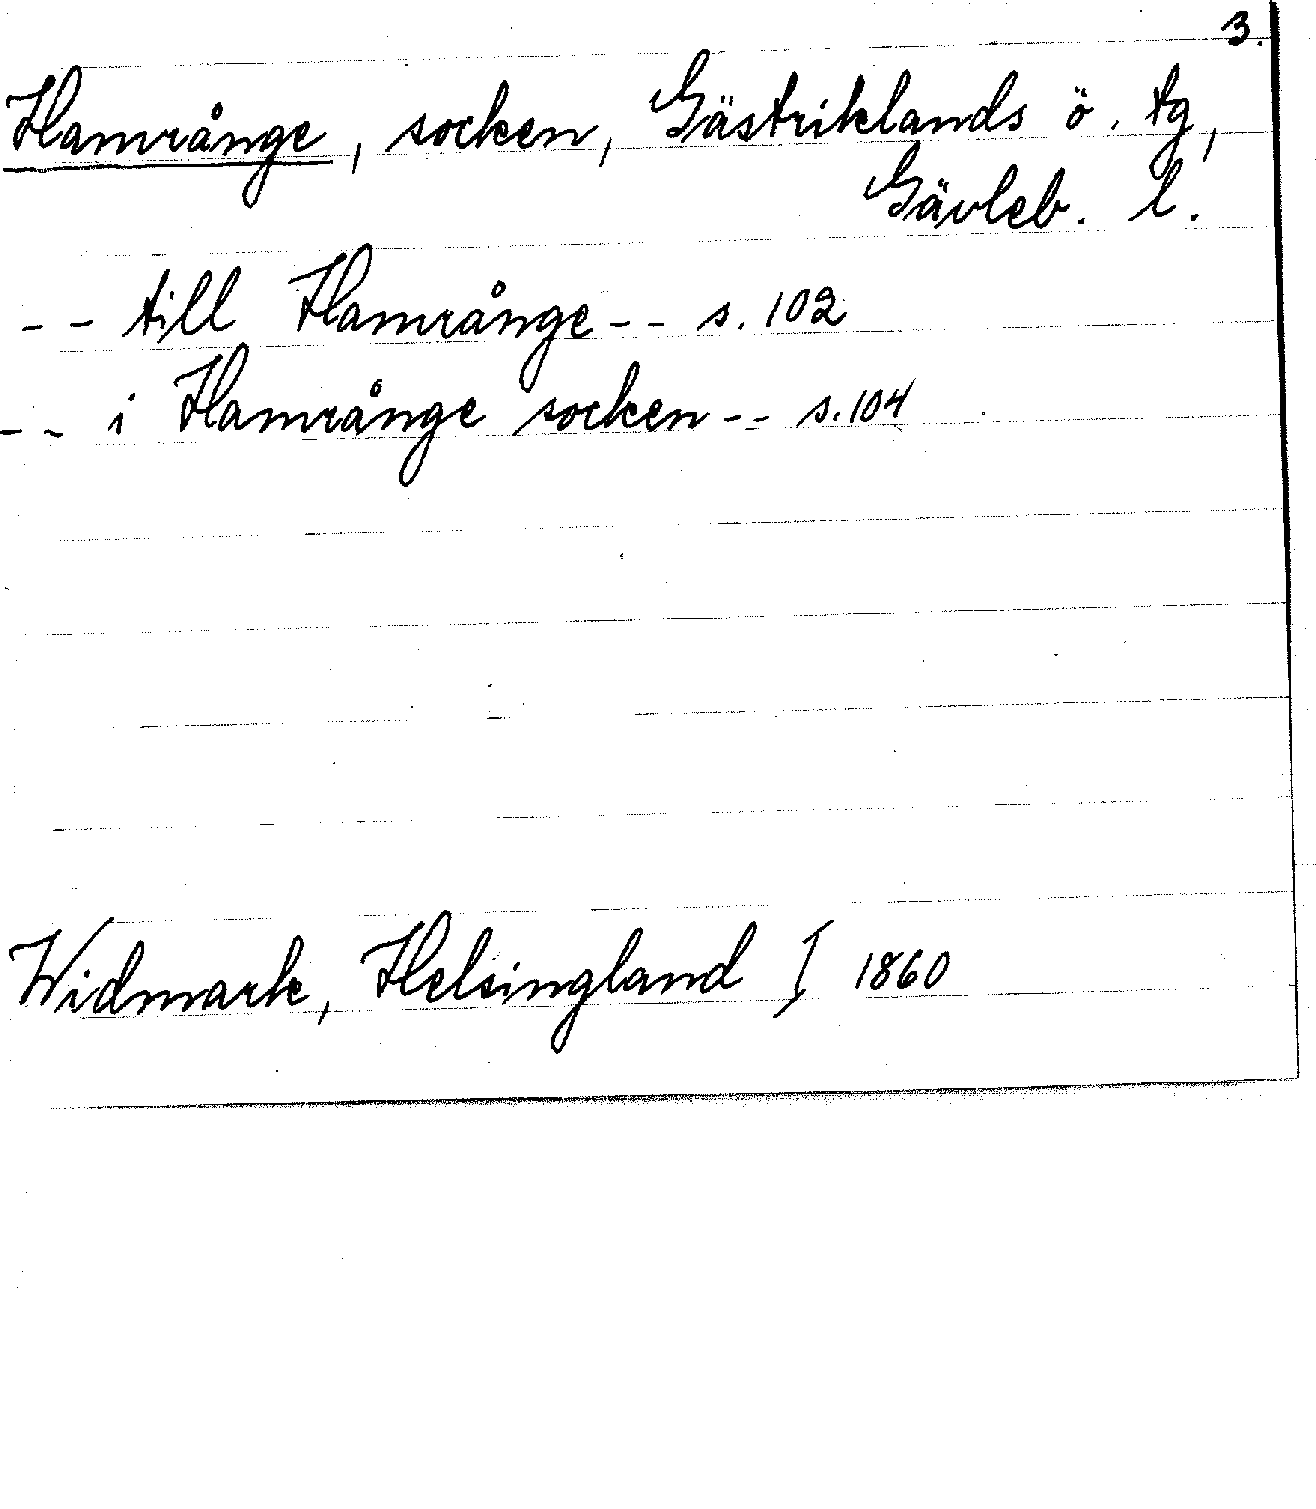 3.
Hamrånge, socken, Gästriklands ö. tg,
Gävleb. l.
-- till Hamrånge -- s. 102
-- i Hamrånge socken -- s. 104
Widmark, Helsingland I 1860